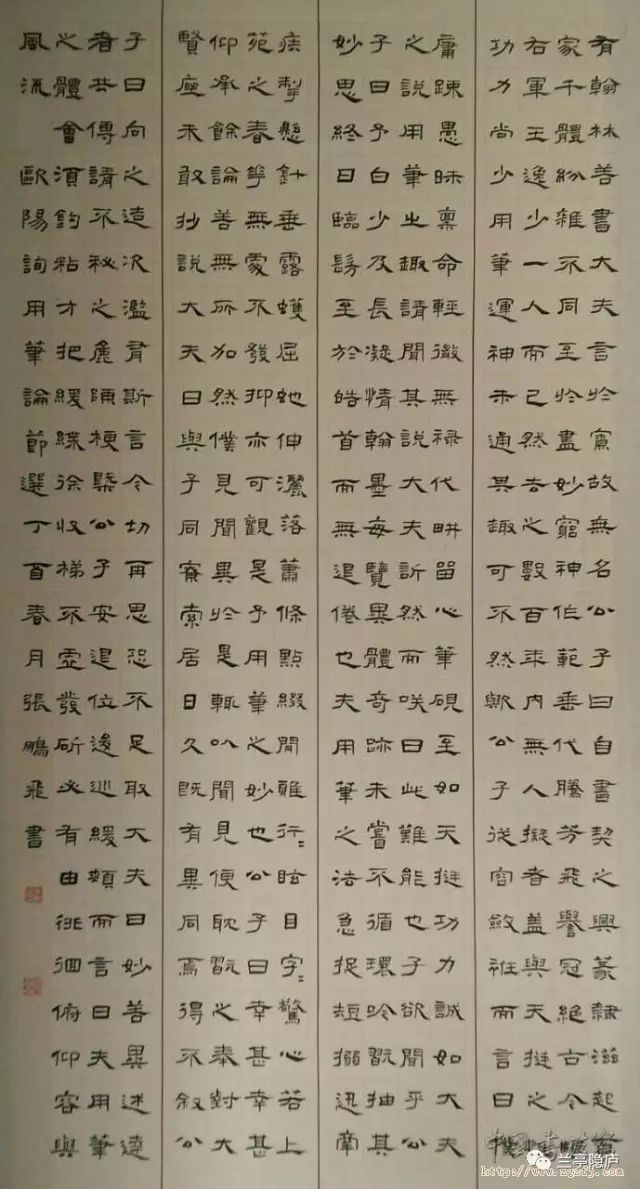 有翰林善書大夫言於寮故無名公子曰自書契之興篆隸滋起百
家千體紛雜不同至於盡妙窮神作範垂代騰芳飛譽冠絕古今唯
右軍王逸少一人而已然去之數百年來內無人擬者蓋與天挺之
功力尚少用筆運神未通其趣可不然歟公子從容斂衽而言曰僕
庸疎愚昧稟命輕微無祿代耕留心筆硯至如天挺功力誠如大夫
之說用筆之趣請聞其說大夫訢然而咲曰此難能也子欲聞乎公
子曰予自少及長凝情翰墨每覽異體奇跡未嘗不循環吟翫抽其
妙思終日臨髣至於皓首而無退倦也夫用筆之法急捉短搦迅牽
疾掣懸針垂露蠖屈蛇伸灑落蕭條點綴閒雅行〻眩目字〻驚心若上
苑之春花無處不發抑亦可觀是予用筆之妙也公子曰幸甚幸甚
仰承餘論善無所加然僕見聞異於是輒以聞見便耽翫之奉對大
賢座未敢抄說大夫曰與子同寮索居日久既有異同焉得不敘公
子曰向之造次濫有斯言今切再思恐不足取大夫曰妙善異述達
者共傳請不秘之粗陳梗概公子安退位逡巡緩頰而言曰夫用筆
之體會須鉤粘才把緩緤徐收梯不虛發斫必有由徘徊俯仰容與
風流
歐陽詢用筆論節選丁酉春月張鵬飛書
兰亭隐庐